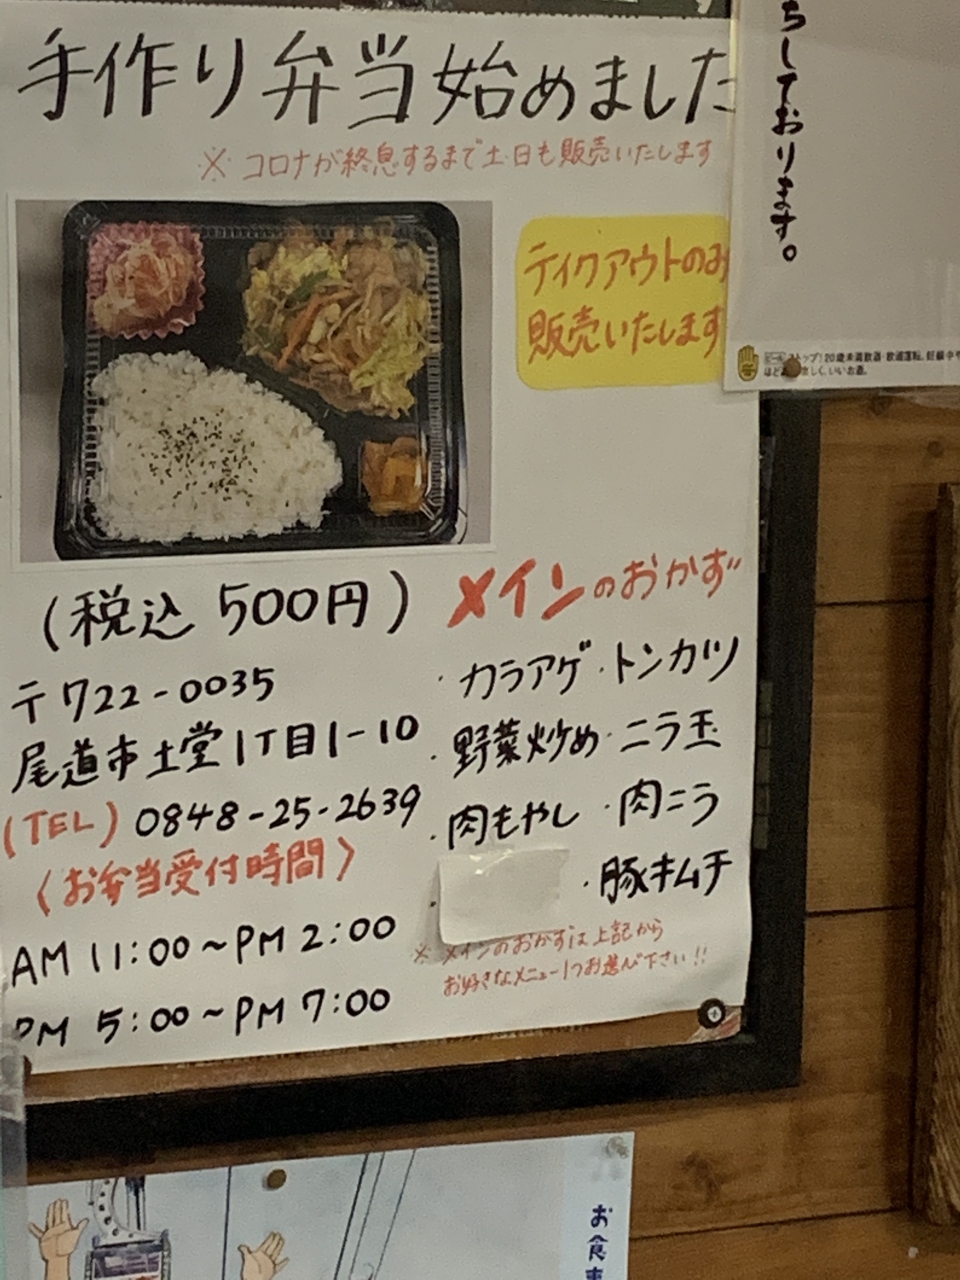 手作り弁当始めました
※ コロナが終息するまで土・日も販売いたします
テイクアウトのみ
販売いたします
(税込 500円)
〒722-0035
尾道市土堂1丁目1-10
(TEL) 0848-25-2639
〈お弁当受付時間〉
AM 11:00~PM 2:00
PM 5:00~PM 7:00
メインのおかず
・カラアゲ ・トンカツ
・野菜炒め ・ニラ玉
・肉もやし ・肉ニラ
・豚キムチ
※ メインのおかずは上記から
お好きなメニュー1つお選び下さい!!
ちしております。
トップ!20歳未満飲酒・飲酒運転。妊娠中や
楽しく、いいお酒。
お食事